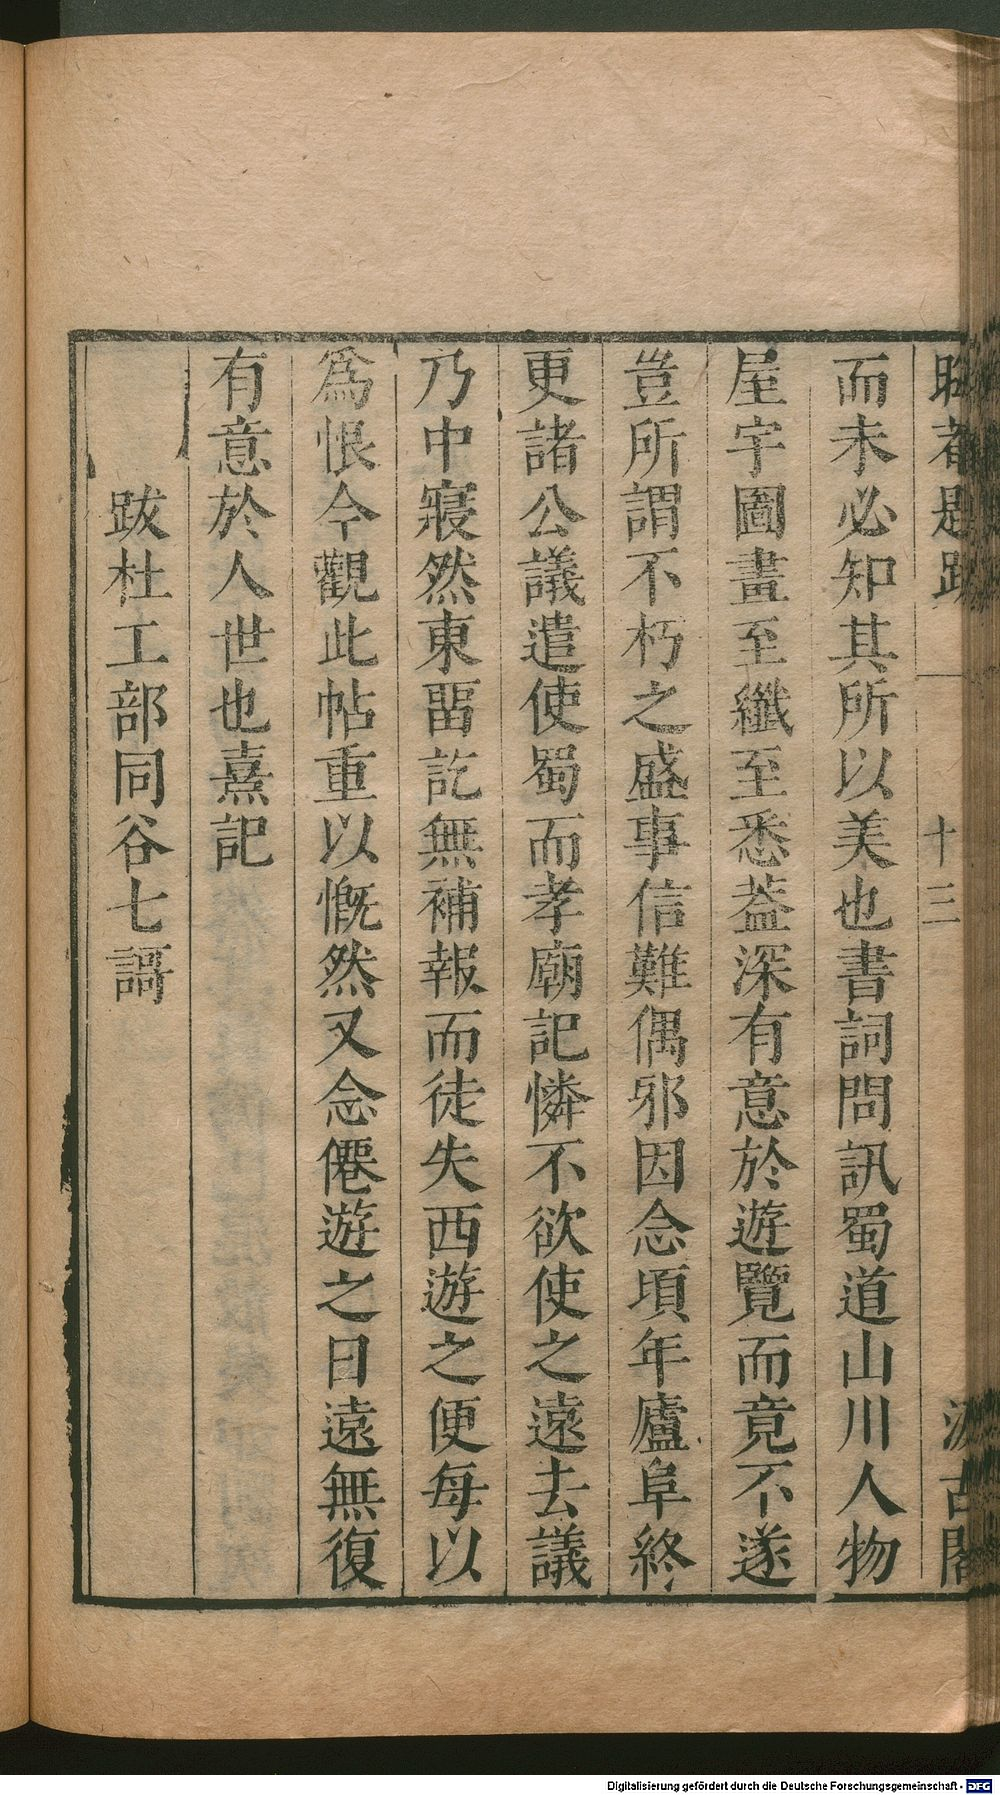 晦菴題跋 十三 汲古閣
而未必知其所以美也書詞問訊蜀道山川人物
屋宇圖畫至纖至悉葢深有意於遊覽而竟不遂
豈所謂不朽之盛事信難偶邪因念頃年廬阜終
更諸公議遣使蜀而孝廟記憐不欲使之遠去議
乃中寢然東畱訖無補報而徒失西遊之便每以
爲恨今觀此帖重以慨然又念僊遊之日遠無復
有意於人世也熹記
跋杜工部同谷七謌
Digitalisierung gefördert durch die Deutsche Forschungsgemeinschaft - DFG